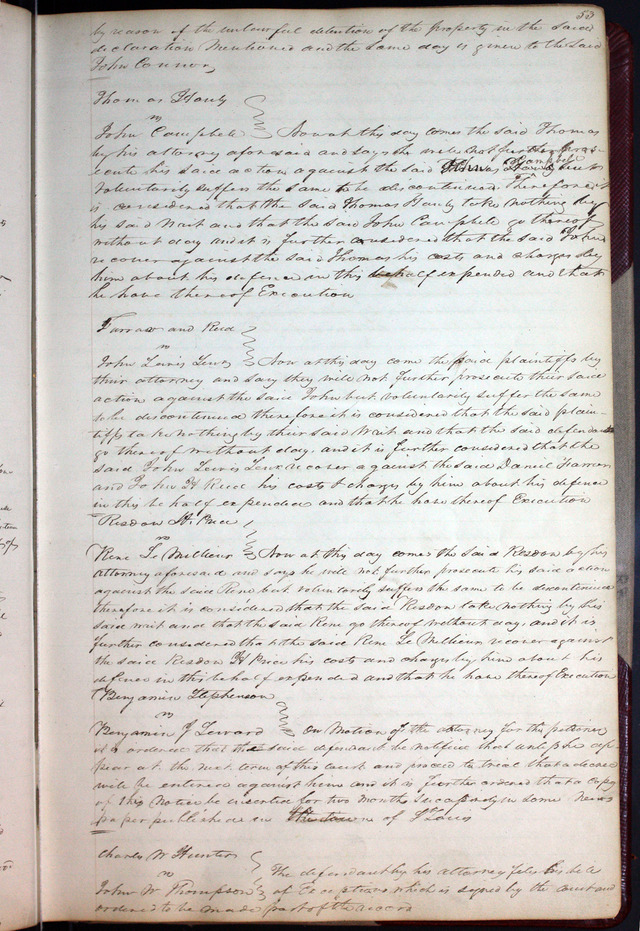 53
by reason of the unlawful detention of the property in the said
declaration mentioned and the same day is given to the said
John Connor
Thomas Hanly
vs
John Campbell Now at this day comes the said Thomas
by his attorney aforesaid and says he will not further prose-
cute his said action against the said Campbell but
voluntarily suffers the same to be discontinued Therefore it
is considered that the said Thomas Hanly take nothing by
his said writ and that the said John Campbell go thereof
without day and it is further considered that the said John
recover against the said Thomas his costs and charges by
him about his defence in this behalf expended and that
he have thereof Execution
Farrar and Reed
vs
John Lewis Now at this day come the said plaintiffs by
their attorney and say they will not further prosecute their said
action against the said John but voluntarily suffer the same
to be discontinued therefore it is considered that the said plain-
tiffs take nothing by their said writ and that the said defendant
go thereof without day, and it is further considered that the
said John Lewis recover against the said Daniel
and John H Reed his costs & charges by him about his defence
in this behalf expended and that he have thereof Execution
Risdon H. Price
vs
Rene Le Mellieur Now at this day comes the said Risdon by his
attorney aforesaid and says he will not further prosecute his said action
against the said Rene but voluntarily suffers the same to be discontinued
therefore it is considered that the said Risdon take nothing by his
said writ and that the said Rene go thereof without day, and it is
further considered that the said Rene Le Mellieur recover against
the said Risdon H Price his costs and charges by him about his
defence in this behalf expended and that he have thereof Execution
Benjamin Stephenson
vs
Benjamin J Seward On motion of the attorney for the petitioner
it is ordered that the said defendant be notified that unless he ap-
pear at the next term of this court and proceed to trial that a decree
will be entered against him and it is further ordered that a copy
of this notice be inserted for two months successively in some news
paper published in of St Louis
Charles W Hunter
John W Thompson The defendant by his attorney files his bill
of Exceptions which is signed by the court and
ordered to be made part of the record